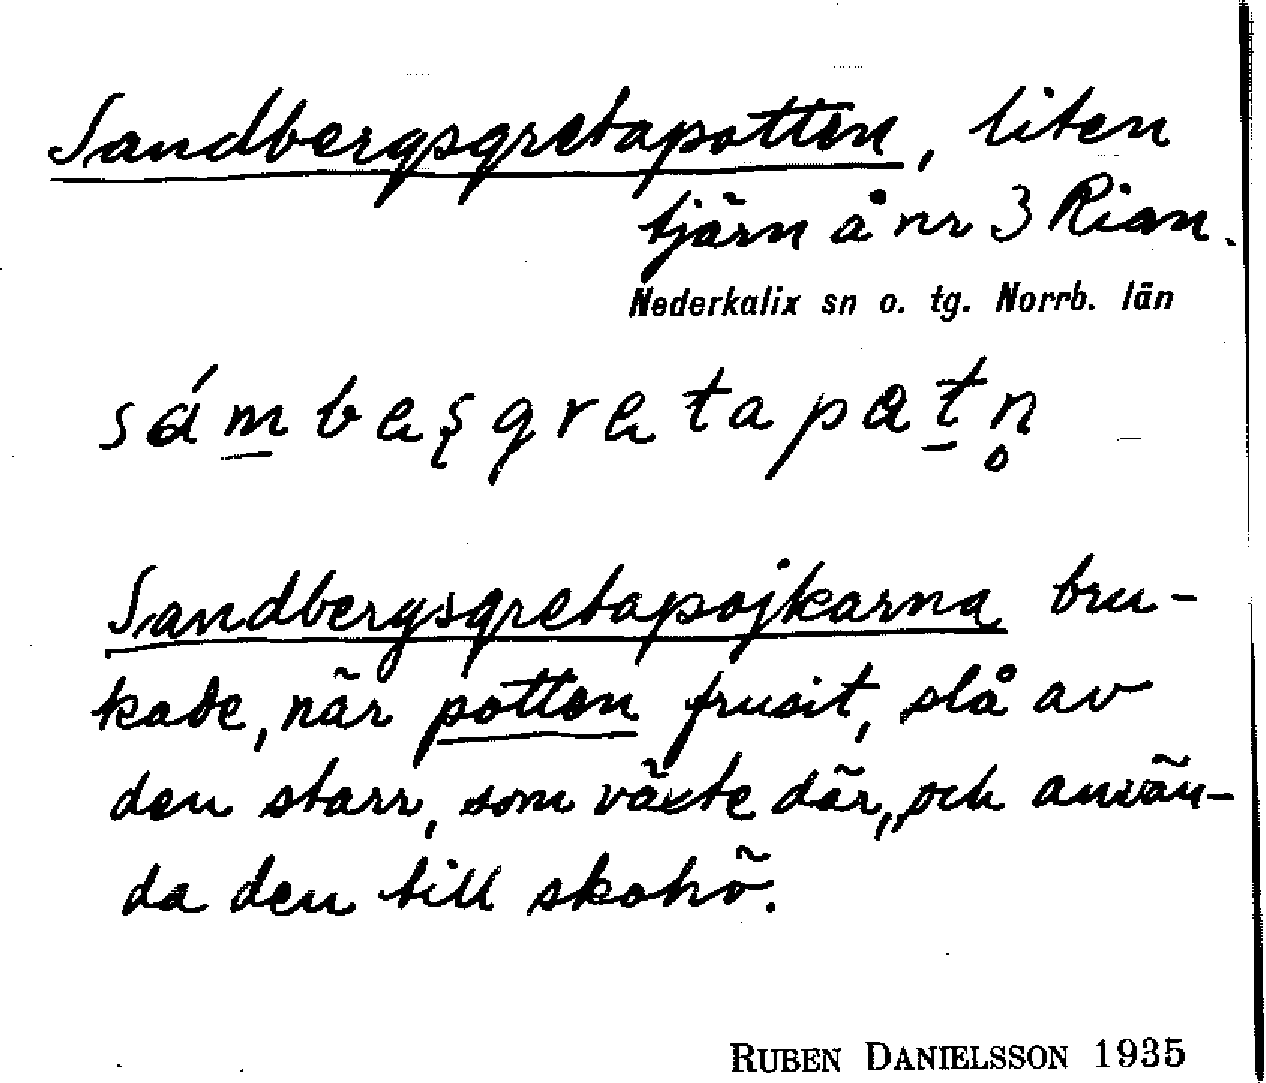 Sandbergsgretapotten, liten
tjärn å nr 3 Rian.
Nederkalix sn o. tg. Norrb. län
sámbeşgretapat̠n̥
Sandbergsgretapojkarna bru-
kade, när potten frusit, slå av
den starr, som växte där, och använ-
da den till skohö.
RUBEN DANIELSSON 1935